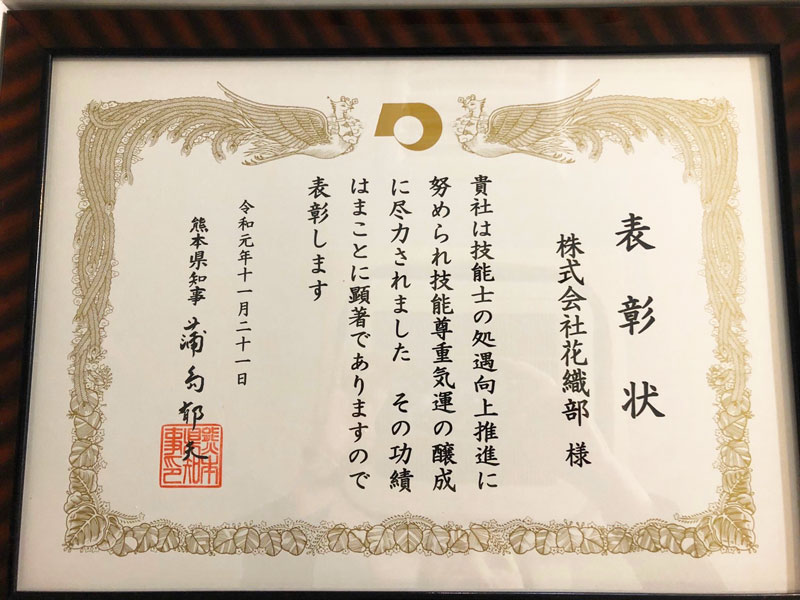 表彰状
株式会社花織部 様
貴社は技能士の処遇向上推進に
努められ技能尊重気運の醸成
に尽力されました その功績
はまことに顕著でありますので
表彰します
令和元年十一月二十一日
熊本県知事 蒲島郁夫
熊本県知事印